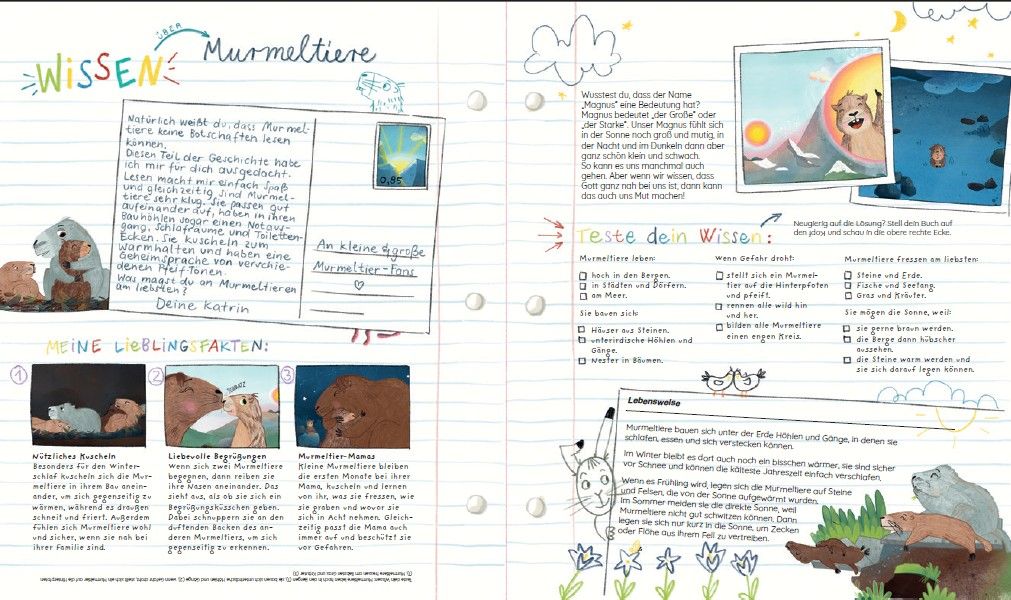 WISSEN
ÜBER
Murmeltiere
Natürlich weißt du, dass Murmel-
tiere keine Botschaften lesen
können.
Diesen Teil der Geschichte habe
ich mir für dich ausgedacht.
Lesen macht mir einfach Spaß
und gleichzeitig sind Murmel-
tiere sehr klug. Sie passen gut
aufeinander auf, haben in ihren
Bauhöhlen sogar einen Notaus-
gang, Schlafräume und Toiletten-
Ecken. Sie kuscheln zum
Warmhalten und haben eine
Geheimsprache von verschie-
denen Pfeif-Tönen.
Was magst du an Murmeltieren
am liebsten?
Deine Katrin
0,95
An kleine & große
Murmeltier-Fans
MEINE LIEBLINGSFAKTEN:
1
Nützliches Kuscheln
Besonders für den Winter-
schlaf kuscheln sich die Mur-
meltiere in ihrem Bau anein-
ander, um sich gegenseitig zu
wärmen, während es draußen
schneit und friert. Außerdem
fühlen sich Murmeltiere wohl
und sicher, wenn sie nah bei
ihrer Familie sind.
2
SCHMATZ
Liebevolle Begrüßungen
Wenn sich zwei Murmeltiere
begegnen, dann reiben sie
ihre Nasen aneinander. Das
sieht aus, als ob sie sich ein
Begrüßungsküsschen geben.
Dabei schnuppern sie an den
duftenden Backen des an-
deren Murmeltiers, um sich
gegenseitig zu erkennen.
3
Murmeltier-Mamas
Kleine Murmeltiere bleiben
die ersten Monate bei ihrer
Mama, kuscheln und lernen
von ihr, was sie fressen, wie
sie graben und wovor sie
sich in Acht nehmen. Gleich-
zeitig passt die Mama auch
immer auf und beschützt sie
vor Gefahren.
Teste dein Wissen: Murmeltiere leben hoch in den Bergen (1); sie bauen sich unterirdische Höhlen und Gänge (2); wenn Gefahr droht, stellt sich ein Murmeltier auf die Hinterpfoten
(1); Murmeltiere fressen am liebsten Gras und Kräuter
Wusstest du, dass der Name
„Magnus“ eine Bedeutung hat?
Magnus bedeutet „der Große“ oder
„der Starke“. Unser Magnus fühlt sich
in der Sonne noch groß und mutig, in
der Nacht und im Dunkeln dann aber
ganz schön klein und schwach.
So kann es uns manchmal auch
gehen. Aber wenn wir wissen, dass
Gott ganz nah bei uns ist, dann kann
das auch uns Mut machen!
Teste dein Wissen:
Neugierig auf die Lösung? Stell dein Buch auf
den Kopf und schau in die obere rechte Ecke.
Murmeltiere leben:
hoch in den Bergen.
in Städten und Dörfern.
am Meer.
Sie bauen sich:
Häuser aus Steinen.
unterirdische Höhlen und
Gänge.
Nester in Bäumen.
Wenn Gefahr droht:
stellt sich ein Murmel-
tier auf die Hinterpfoten
und pfeift.
rennen alle wild hin
und her.
bilden alle Murmeltiere
einen engen Kreis.
Murmeltiere fressen am liebsten:
Steine und Erde.
Fische und Seetang.
Gras und Kräuter.
Sie mögen die Sonne, weil:
sie gerne braun werden.
die Berge dann hübscher
aussehen.
die Steine warm werden und
sie sich darauf legen können.
Lebensweise
Murmeltiere bauen sich unter der Erde Höhlen und Gänge, in denen sie
schlafen, essen und sich verstecken können.
Im Winter bleibt es dort auch noch ein bisschen wärmer, sie sind sicher
vor Schnee und können die kälteste Jahreszeit einfach verschlafen.
Wenn es Frühling wird, legen sich die Murmeltiere auf Steine
und Felsen, die von der Sonne aufgewärmt wurden.
Im Sommer meiden sie die direkte Sonne, weil
Murmeltiere nicht gut schwitzen können. Dann
legen sie sich nur kurz in die Sonne, um Zecken
oder Flöhe aus ihrem Fell zu vertreiben.